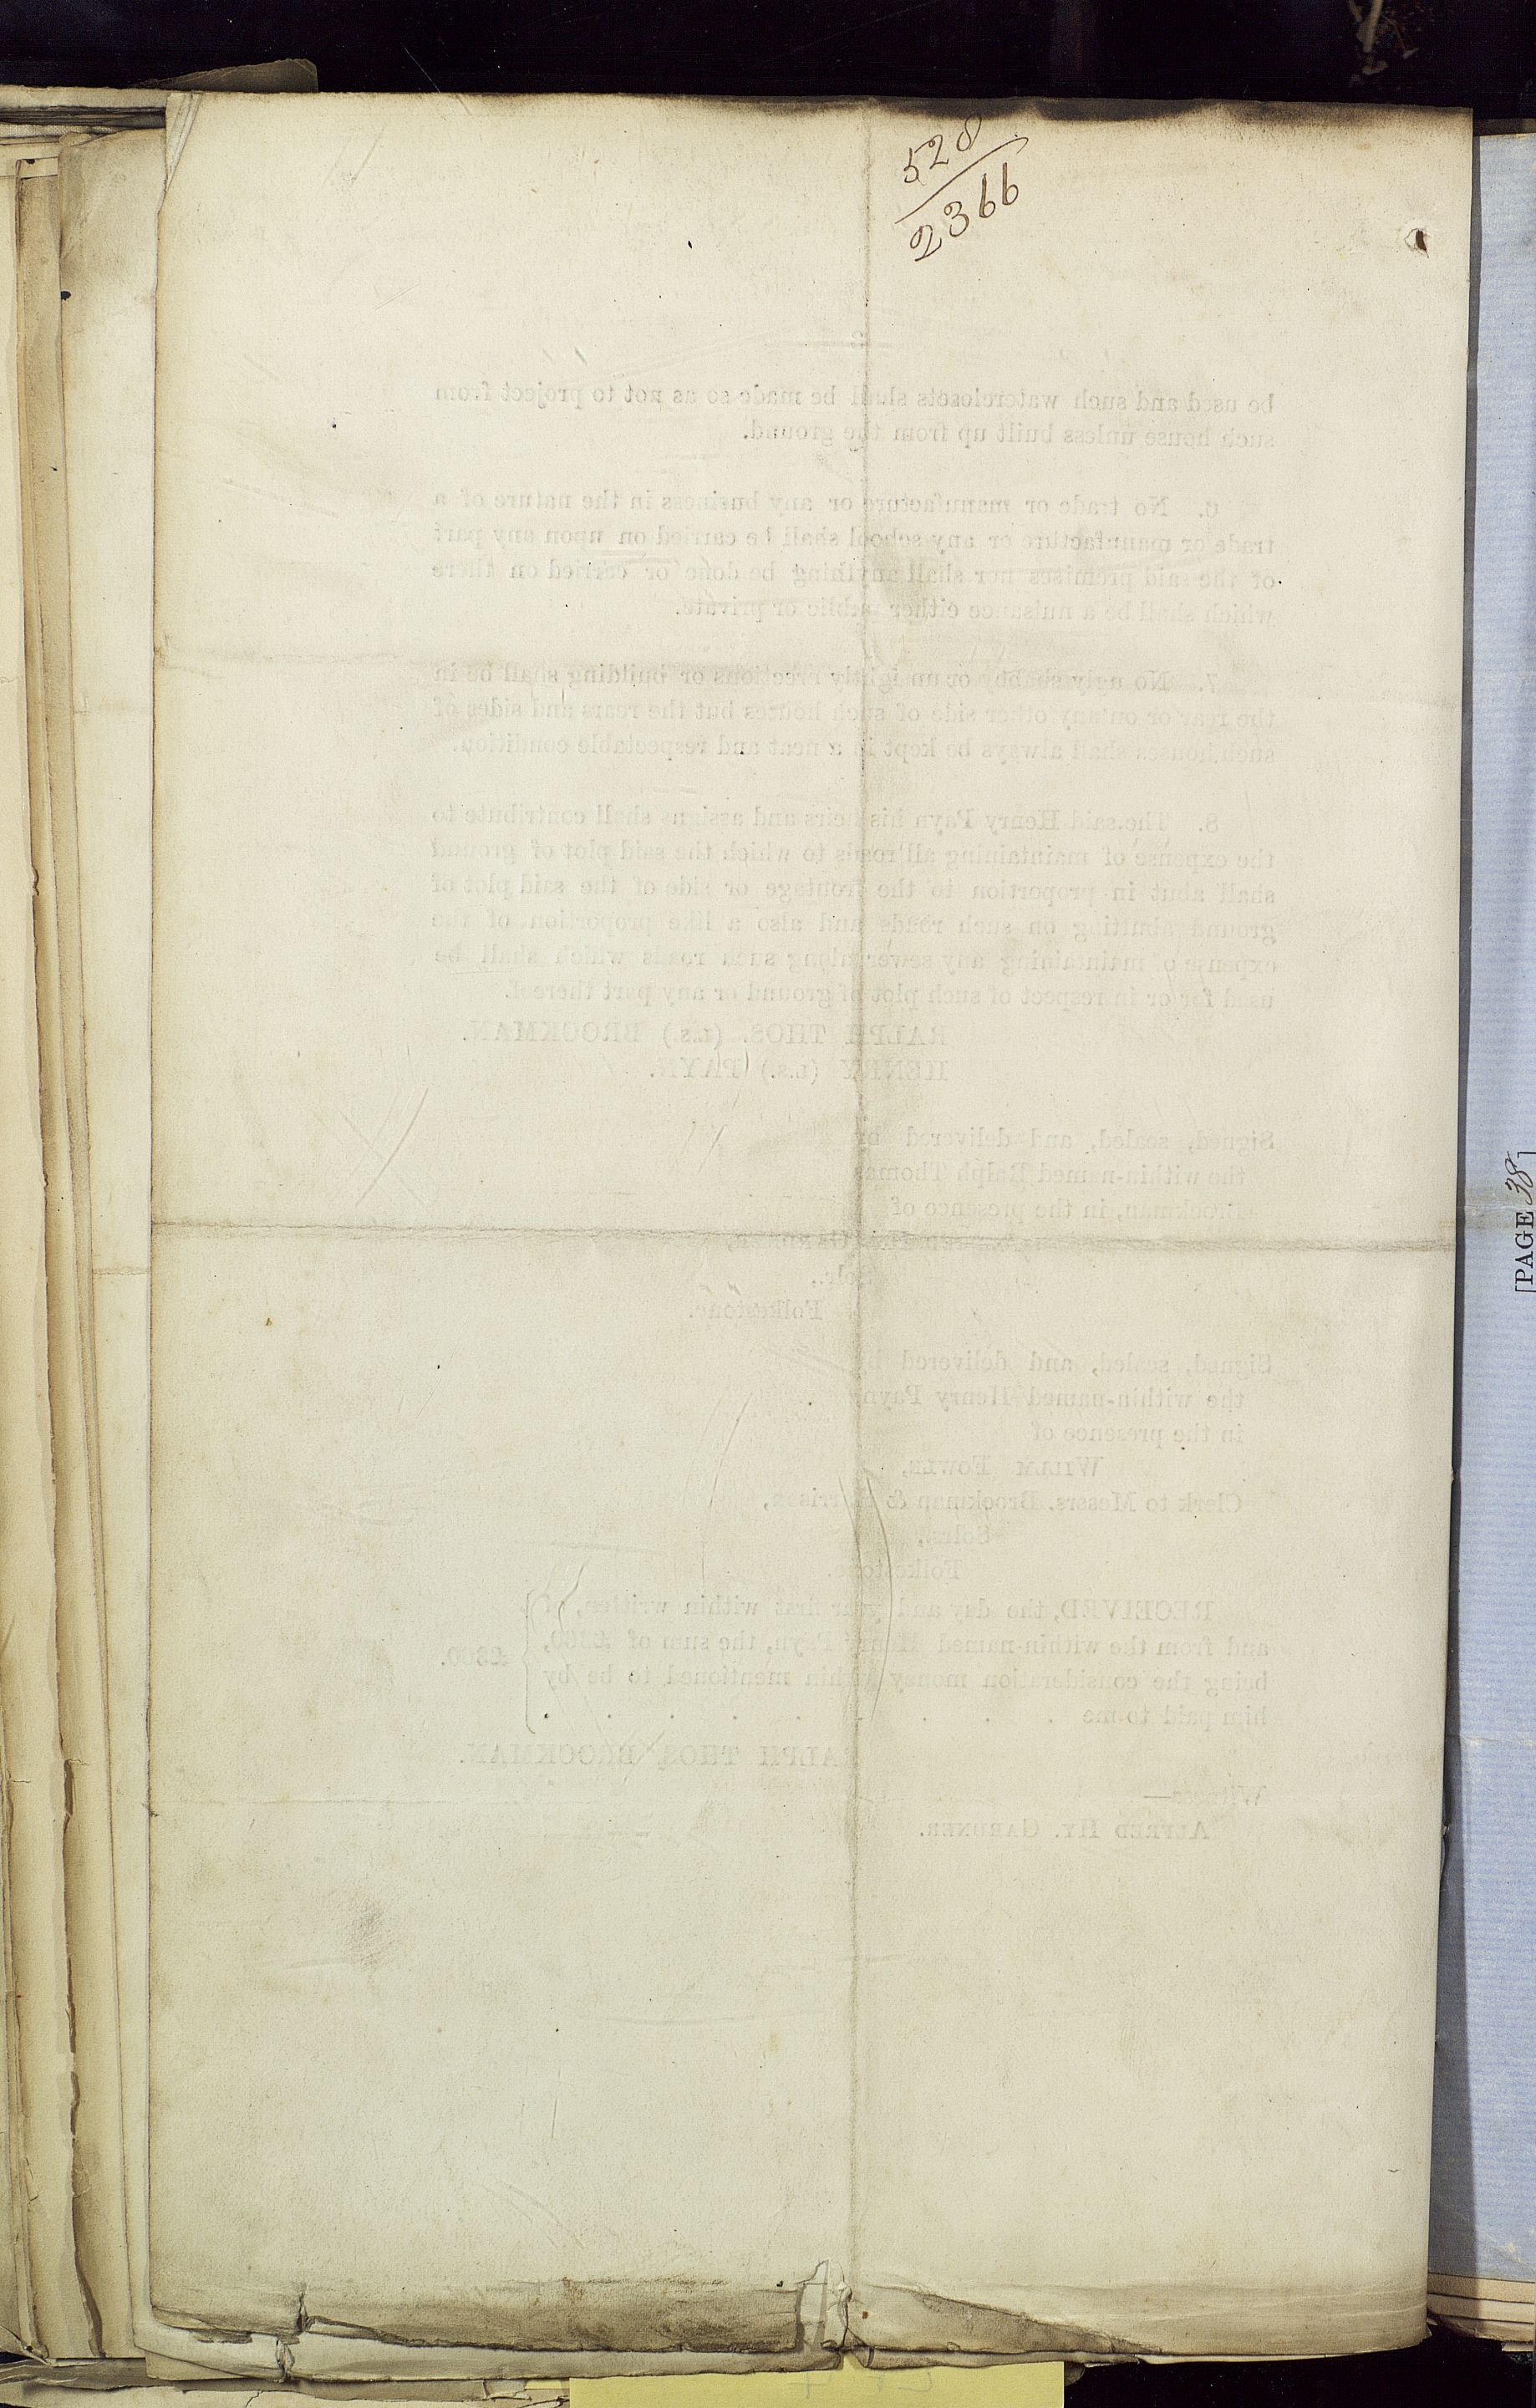 528
2366
be used and such waterclosets shall be made so as not to project from
such house unless built up from the ground.
6. No trade or manufacture or any business in the nature of a
trade or manufacture or any school shall be carried on upon any part
of the said premises nor shall anything be done or carried on there
which shall be a nuisance either public or private.
7. No ugly shabby or unsightly erections or building shall be in
the rear or on any other side of such houses but the rears and sides of
such houses shall always be kept in a neat and respectable condition.
8. The said Henry Payn his heirs and assigns shall contribute to
the expense of maintaining all roads to which the said plot of ground
shall abut in proportion to the frontage or side of the said plot of
ground abutting on such roads and also a like proportion of the
expense of maintaining any sewer along such roads which shall be
used for or in respect of such plot of ground or any part thereof.
RALPH THOS. (L.S.) BROCKMAN.
HENRY (L.S.) PAYN.
Signed, sealed, and delivered by
the within-named Ralph Thomas
Brockman, in the presence of
Folkestone.
Signed, sealed, and delivered by
the within-named Henry Payn,
in the presence of
WILLM FOWLE,
Clerk to Messrs. Brockman & Harrison,
Solrs.,
Folkestone.
RECEIVED, the day and year first within written, of
and from the within-named Henry Payn, the sum of £360,
being the consideration money within mentioned to be by
him paid to me
£360.
RALPH THOS. BROCKMAN.
Witness—
ALFRED HY. GARDNER.
[PAGE 38]